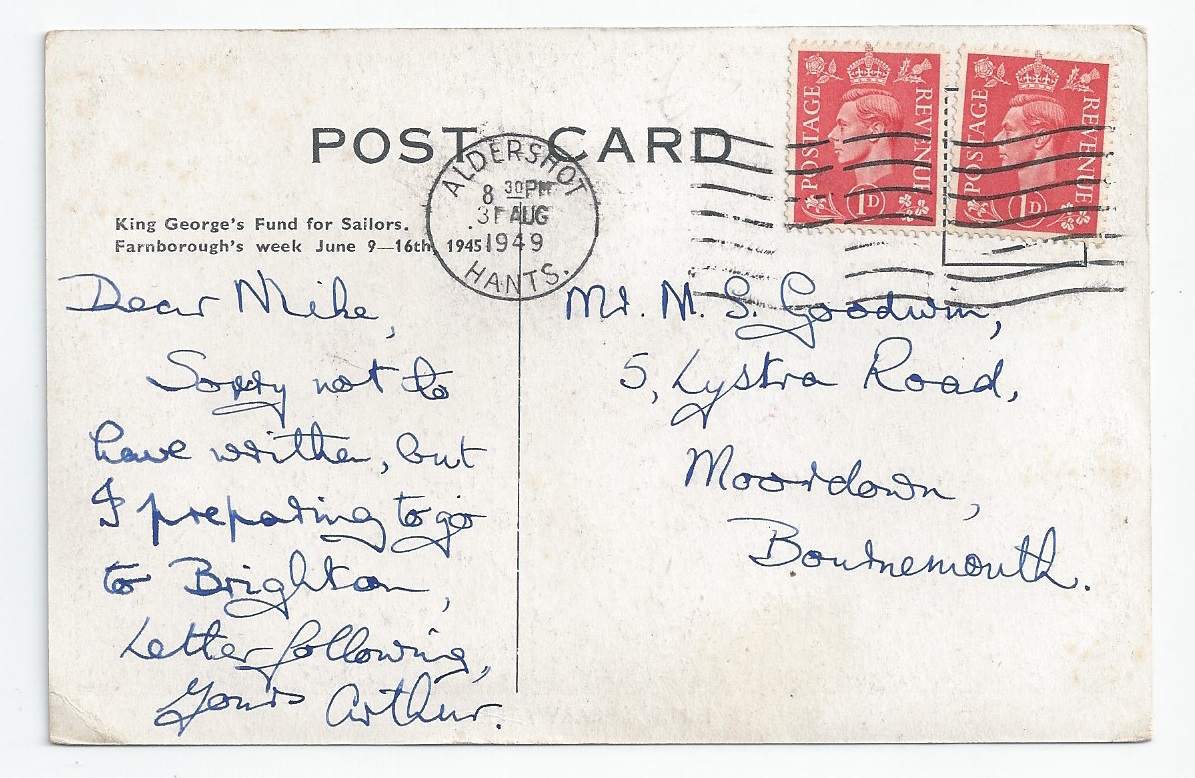 POST CARD
POSTAGE REVENUE 1D
POSTAGE REVENUE 1D
ALDERSHOT
8 30 PM
AUG
1949
HANTS.
King George's Fund for Sailors.
Farnborough's week June 9—16th 1945.
Dear Mike,
Sorry not to
have written, but
I preparing to go
to Brighton,
Letter following,
Yours Arthur.
Mr. M. S. Goodwin,
5, Lystra Road,
Moordown,
Bournemouth.